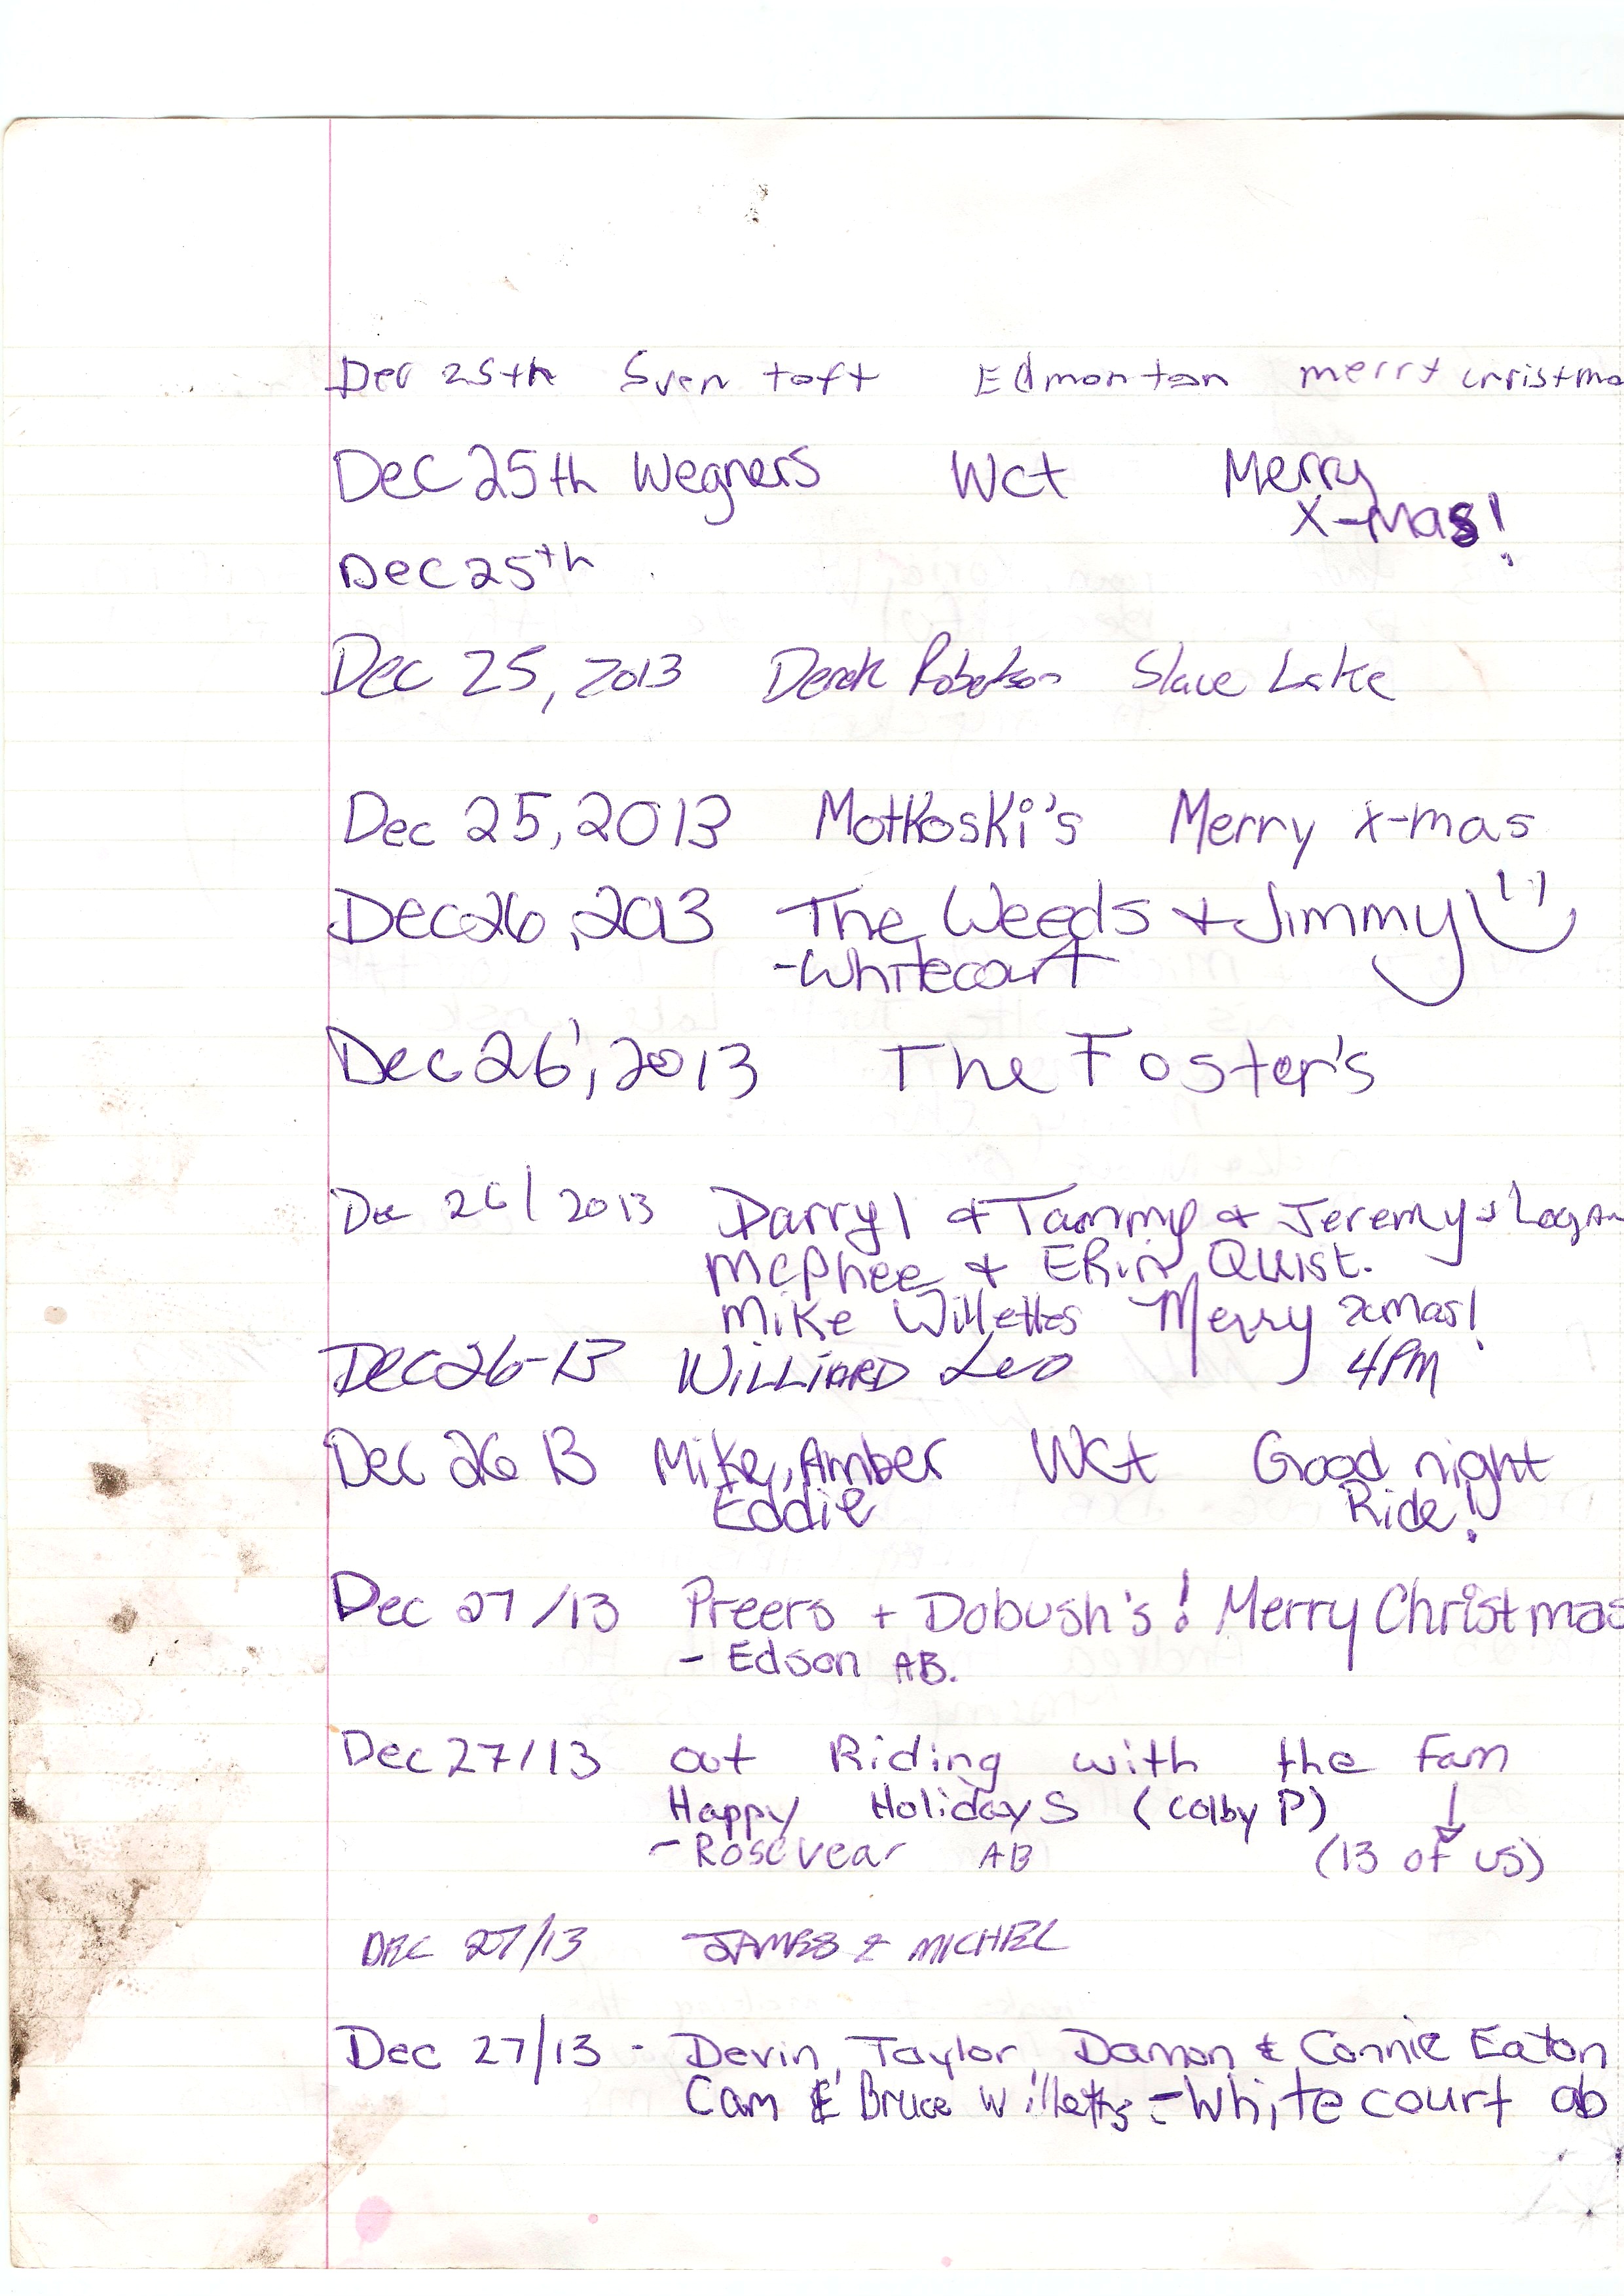 Dec 25th Sven toft Edmonton merry christma
Dec 25th Wegners Wct Merry
X-Mas!
Dec 25th
Dec 25, 2013 Derek Robertson Slave Lake
Dec 25, 2013 Motkoski's Merry x-mas
Dec 26, 2013 The Weeds + Jimmy
-Whitecourt
Dec 26, 2013 The Foster's
Dec 26/2013 Darryl & Tammy & Jeremy & Logan
McPhee & ERin QUist.
Mike Willetts Merry xmas!
Dec 26-13 WILLIARD Leo 4PM
Dec 26 13 Mike, Amber WCt Good night
Eddie Ride!
Dec 27/13 Preers + Dobush's! Merry Christmas
- Edson AB.
Dec 27/13 out Riding with the Fam
Happy Holidays (Colby P)
- Rosevear AB (13 of us)
DEC 27/13 JAMES & MICHEL
Dec 27/13 - Devin, Taylor, Damon & Connie Eaton
Cam & Bruce Willetts - Whitecourt ab